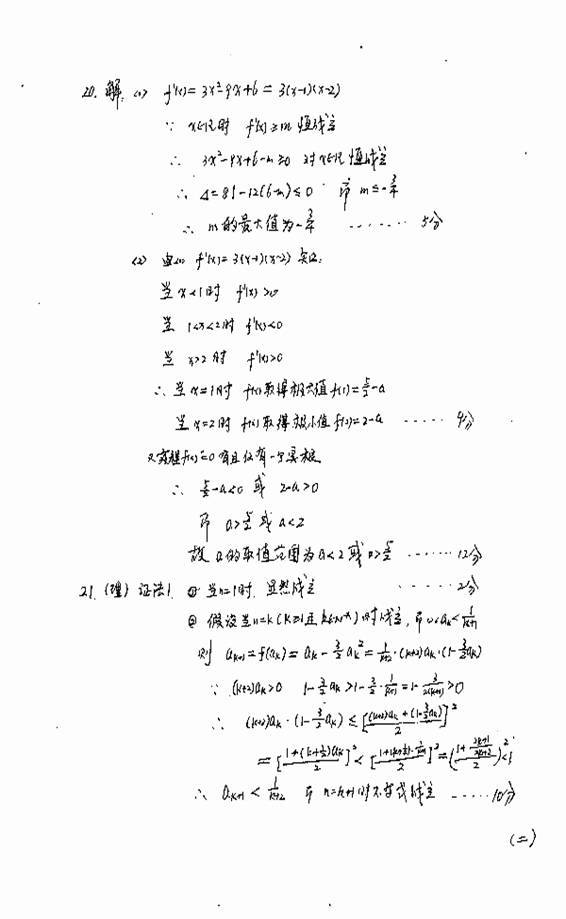 20. 解: (1) f'(x)=3x²-9x+6=3(x-1)(x-2)
∵ x∈R时 f'(x)≥m 恒成立
∴ 3x²-9x+6-m≥0 对x∈R恒成立
∴ Δ=81-12(6-m)≤0 即 m≤-3/4
∴ m的最大值为-3/4 ······ 5分
(2) 由(1) f'(x)=3(x-1)(x-2)
当x<1时 f'(x)>0
当1<x<2时 f'(x)<0
当x>2时 f'(x)>0
∴当x=1时 f(x)取得极大值f(1)=5/2-a
当x=2时f(x)取得极小值f(2)=2-a ····· 9分
又方程f(x)=0有且仅有一个实根
∴ 5/2-a<0 或 2-a>0
即 a>5/2 或 a<2
故 a的取值范围为a<2或a>5/2 ······ 12分
21. (理) 证法1. ① 当n=1时, 显然成立 ····· 2分
② 假设当n=k(k≥1且k∈N*)时成立, 即 0<a_k<1/(k+1)
则 a_{k+1}=f(a_k)=a_k-3/2a_k²=1/(k+2)·(k+2)a_k·(1-3/2a_k)
∵ (k+2)a_k>0 1-3/2a_k>1-3/2·1/(k+1)=1-3/(2(k+1))>0
∴ (k+2)a_k·(1-3/2a_k)≤[((k+2)a_k+(1-3/2a_k))/2]²
=[(1+(k+1/2)a_k)/2]²<[(1+(k+1/2)·1/(k+1))/2]²=((1+(2k+1)/(2k+2))/2)²<1
∴ a_{k+1}<1/(k+2) 即 n=k+1时不等式成立 ····· 10分
(二)